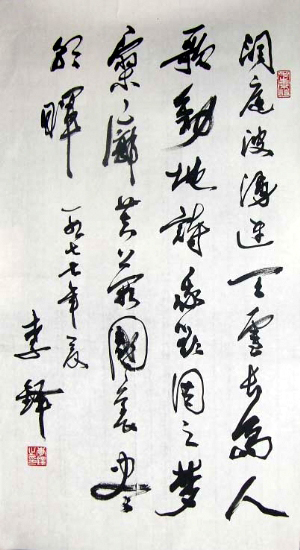 洞庭波涌連天雪長島人
歌動地詩我欲因之夢
寥廓芙蓉國裏盡
朝暉 一九七七年夏
李鐸